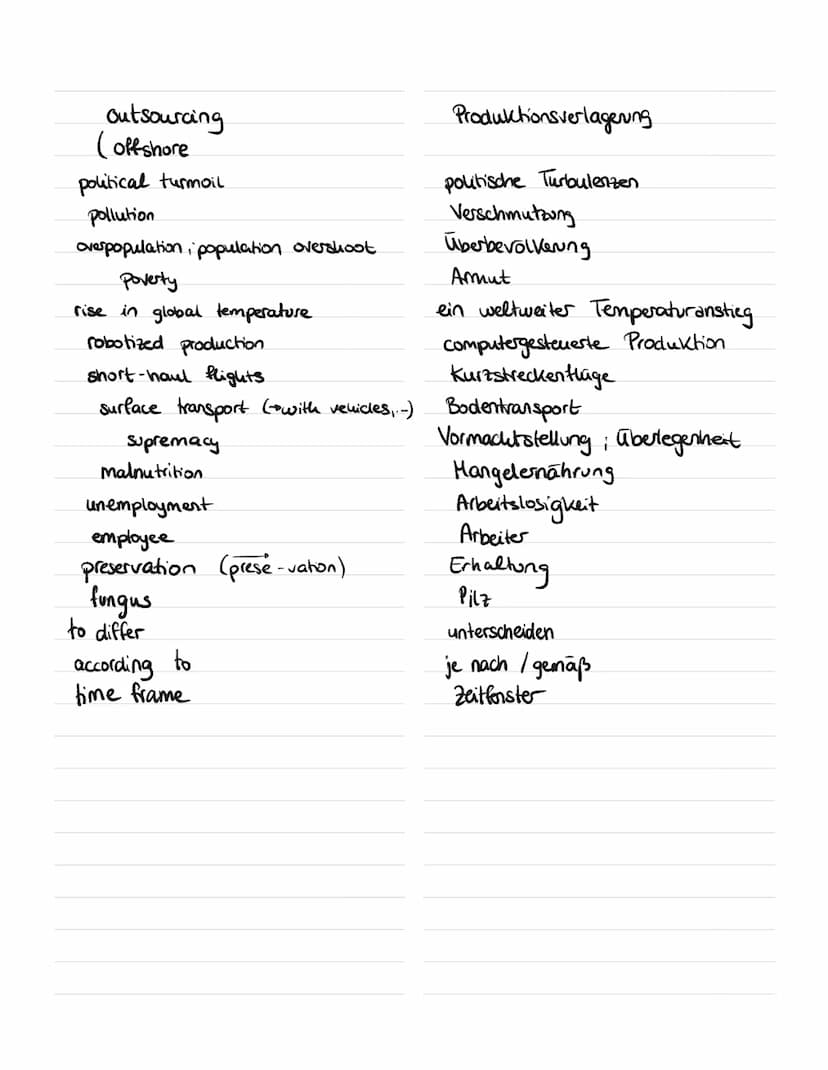 outsourcing Produktionsverlagerung
(offshore
political turmoil politische Turbulenzen
pollution Verschmutzung
overpopulation; population overshoot Überbevölkerung
poverty Armut
rise in global temperature ein weltweiter Temperaturanstieg
robotized production computergesteuerte Produktion
short-haul flights Kurzstreckenflüge
surface transport (→with vehicles,..) Bodentransport
supremacy Vormachtstellung ; Überlegenheit
malnutrition Mangelernährung
unemployment Arbeitslosigkeit
employee Arbeiter
preservation (prese-vation) Erhaltung
fungus Pilz
to differ unterscheiden
according to je nach / gemäß
time frame Zeitfenster